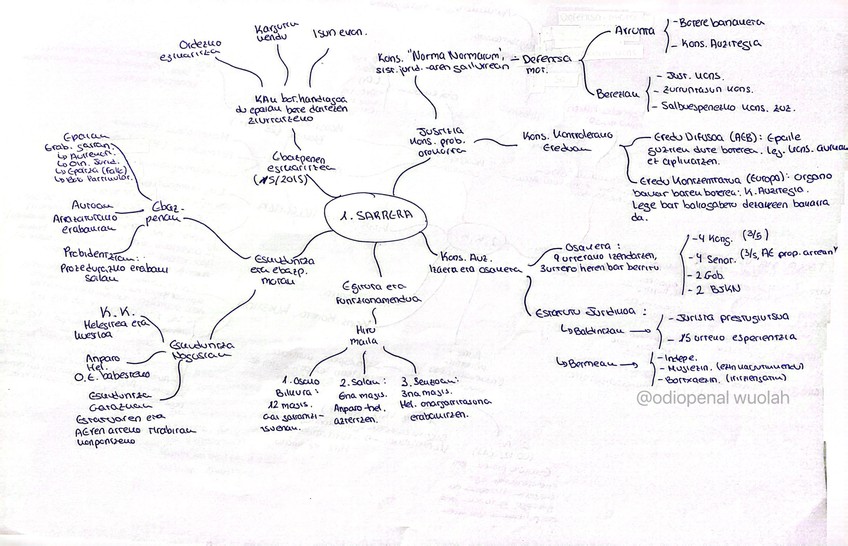 1. SARRERA
Justizia
Kons. prob.
orokorra
Kons. "Norma Normarum",
sist. jurid.-aren gailurrean
Defentsa
mot.
Arrunta
- Botere banaketa
- Kons. Auzitegia
Bereziak
- Just. Kons.
- Zurruntasun Kons.
- Salbuespenezko Kons.
Kons. Kontrolerako
Ereduak
Eredu Difusoa (AEB): Epaile
guztiek dute boterea. Leg. Kons.
ez aplikatzen.
Eredu Kontzentratua (Europa): Organo
bakar baten boterea: K. Auzitegia.
Lege bat baliogabetu dezakeen bakarra
da.
Kons. Auz.
Izaera eta osaera
Osaera:
9 urterako izendatzen,
3urtero heren bat berritu
- 4 Kong. (3/5)
- 4 Senat. (3/5, AE prop. artean)
- 2 Gob.
- 2 BJKN
Estatutu Juridikoa:
↳ Baldintzak
- Jurista prestigiutsua
- 15 urteko esperientzia
↳ Bermeak
- Indepe.
- Mugiezin.
- Bortxaezin.
Egitura eta
Funtzionamendua
Hiru
maila
1. Osoko
Bilkura:
12 magis.
Gai garrantzi-
tsuenak.
2. Salak:
6na magis.
Anparo-hel.
aztertzen.
3. Sekzioak:
3na magis.
Hel. onargarritasuna
erabakitzen.
Eskuduntza
eta ebazp.
motak
Eskuduntza
Nagusiak
K.K.
Helegitea eta
kuestioa
Anparo
Hel.
O.E. babesteko
Eskuduntza
Gatazkak
Estatuaren eta
AEren arteko tirabirak
konpontzeko
Ebaz-
penak
Epaiak
Erab. garran.
↳ Aurrekari.
↳ Oin. Jurid.
↳ Epaitza (Falla)
↳ Boto Partikular.
Autoak
Arrazoituriko
erabakiak
Probidentziak:
Prozedurazko erabaki
solak
Ebazpenen
egikaritza
(15/2015)
KAk bot. handiagoa
du epaiak bete daitezen
ziurtatzeko
Ordezko
egikaritza
Kargutik
kendu
Isun ekon.
@odiopenal wuolah